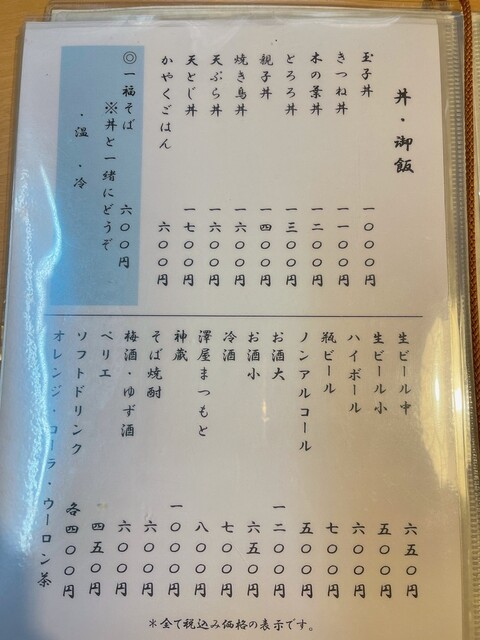 丼・御飯
玉子丼 一〇〇〇円
きつね丼 一一〇〇円
木の葉丼 一二〇〇円
とろろ丼 一三〇〇円
親子丼 一四〇〇円
焼き鳥丼 一六〇〇円
天ぷら丼 一六〇〇円
天とじ丼 一七〇〇円
かやくごはん 六〇〇円
◎一福そば 六〇〇円
※丼と一緒にどうぞ
・温 ・冷
生ビール中 六五〇円
生ビール小 五〇〇円
ハイボール 六〇〇円
瓶ビール 七〇〇円
ノンアルコール 五〇〇円
お酒大 一二〇〇円
お酒小 六五〇円
冷酒 七〇〇円
澤屋まつもと 八〇〇円
神蔵 一〇〇〇円
そば焼酎 六〇〇円
梅酒・ゆず酒 六〇〇円
ペリエ 四五〇円
ソフトドリンク 各四〇〇円
オレンジ・コーラ・ウーロン茶
＊全て税込み価格の表示です。